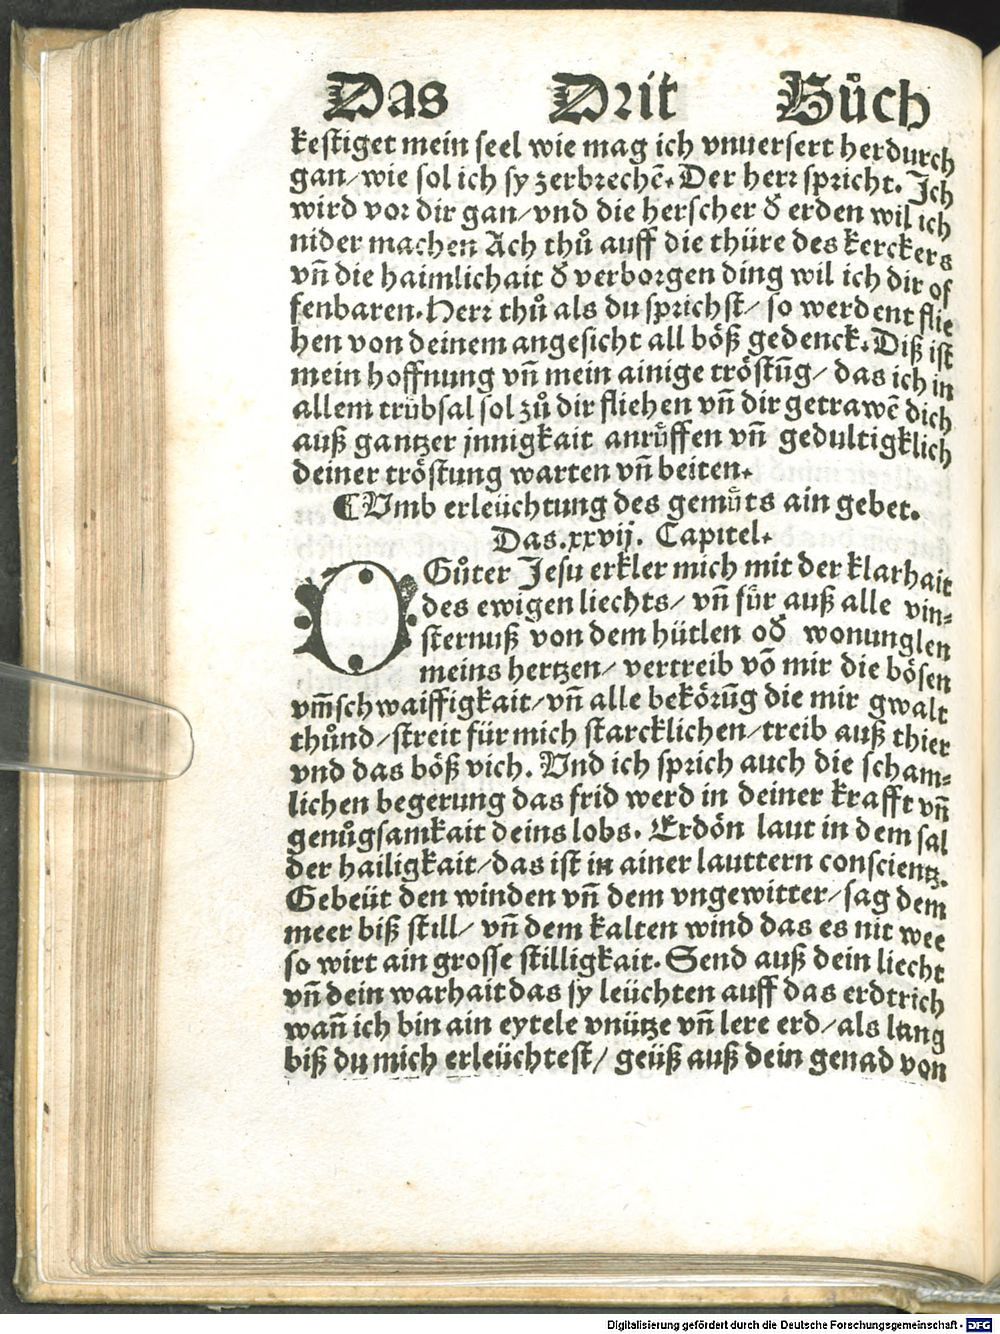 Das Drit Bůch
kestiget mein seel wie mag ich vnuersert herdurch
gan/wie sol ich sy zerbrechē. Der herr spricht. Ich
wird vor dir gan/vnd die herscher d̕ erden wil ich
nider machen Ach thů auff die thüre des kerckers
vn̄ die haimlichait d̕ verborgen ding wil ich dir of
fenbaren. Herr thů als du sprichst/ so werdent flie
hen von deinem angesicht all böß gedenck. Diß ist
mein hoffnung vn̄ mein ainige tröstūg/ das ich in
allem trübsal sol zů dir fliehen vn̄ dir getrawē dich
auß gantzer jnnigkait anrůffen vn̄ gedultigklich
deiner tröstung warten vn̄ beiten.
¶Vmb erleüchtung des gemüts ain gebet.
Das.xxvij. Capitel.
O Gůter Jesu erkler mich mit der klarhait
des ewigen liechts/ vn̄ für auß alle vin=
sternuß von dem hütlen od̕ wonunglen
meins hertzen/ vertreib vō mir die bösen
vm̄schwaiffigkait/vn̄ alle bekörūg die mir gwalt
thůnd/streit für mich starcklichen/treib auß thier
vnd das böß vich. Vnd ich sprich auch die scham=
lichen begerung das frid werd in deiner krafft vn̄
genůgsamkait deins lobs. Erdön laut in dem sal
der hailigkait/das ist in ainer lauttern conscientz.
Gebeüt den winden vn̄ dem vngewitter/sag dem
meer biß still/ vn̄ dem kalten wind das es nit wee
so wirt ain grosse stilligkait. Send auß dein liecht
vn̄ dein warhait das sy leüchten auff das erdtrich
wan̄ ich bin ain eytele vnütze vn̄ lere erd/als lang
biß du mich erleüchtest/ geüß auß dein genad von
Digitalisierung gefördert durch die Deutsche Forschungsgemeinschaft - DFG